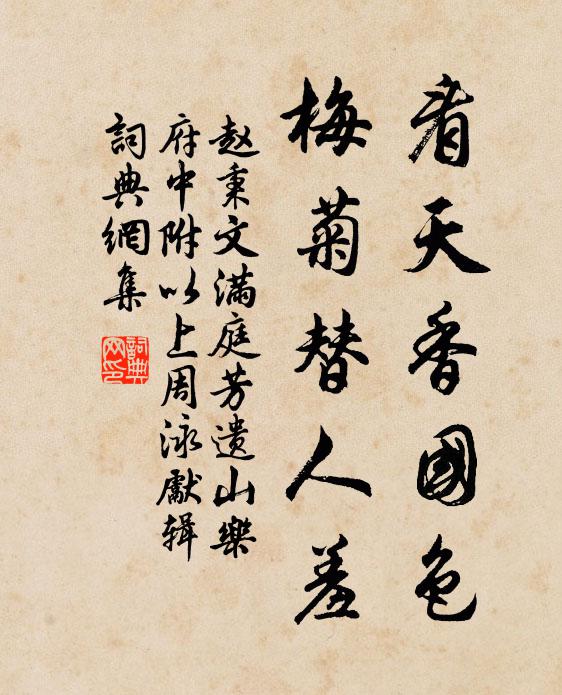 看天香國色
梅菊替人羞
赵秉文滿庭芳遗山樂
府中附以上周泳獻辑
詞典網集
詞典网印